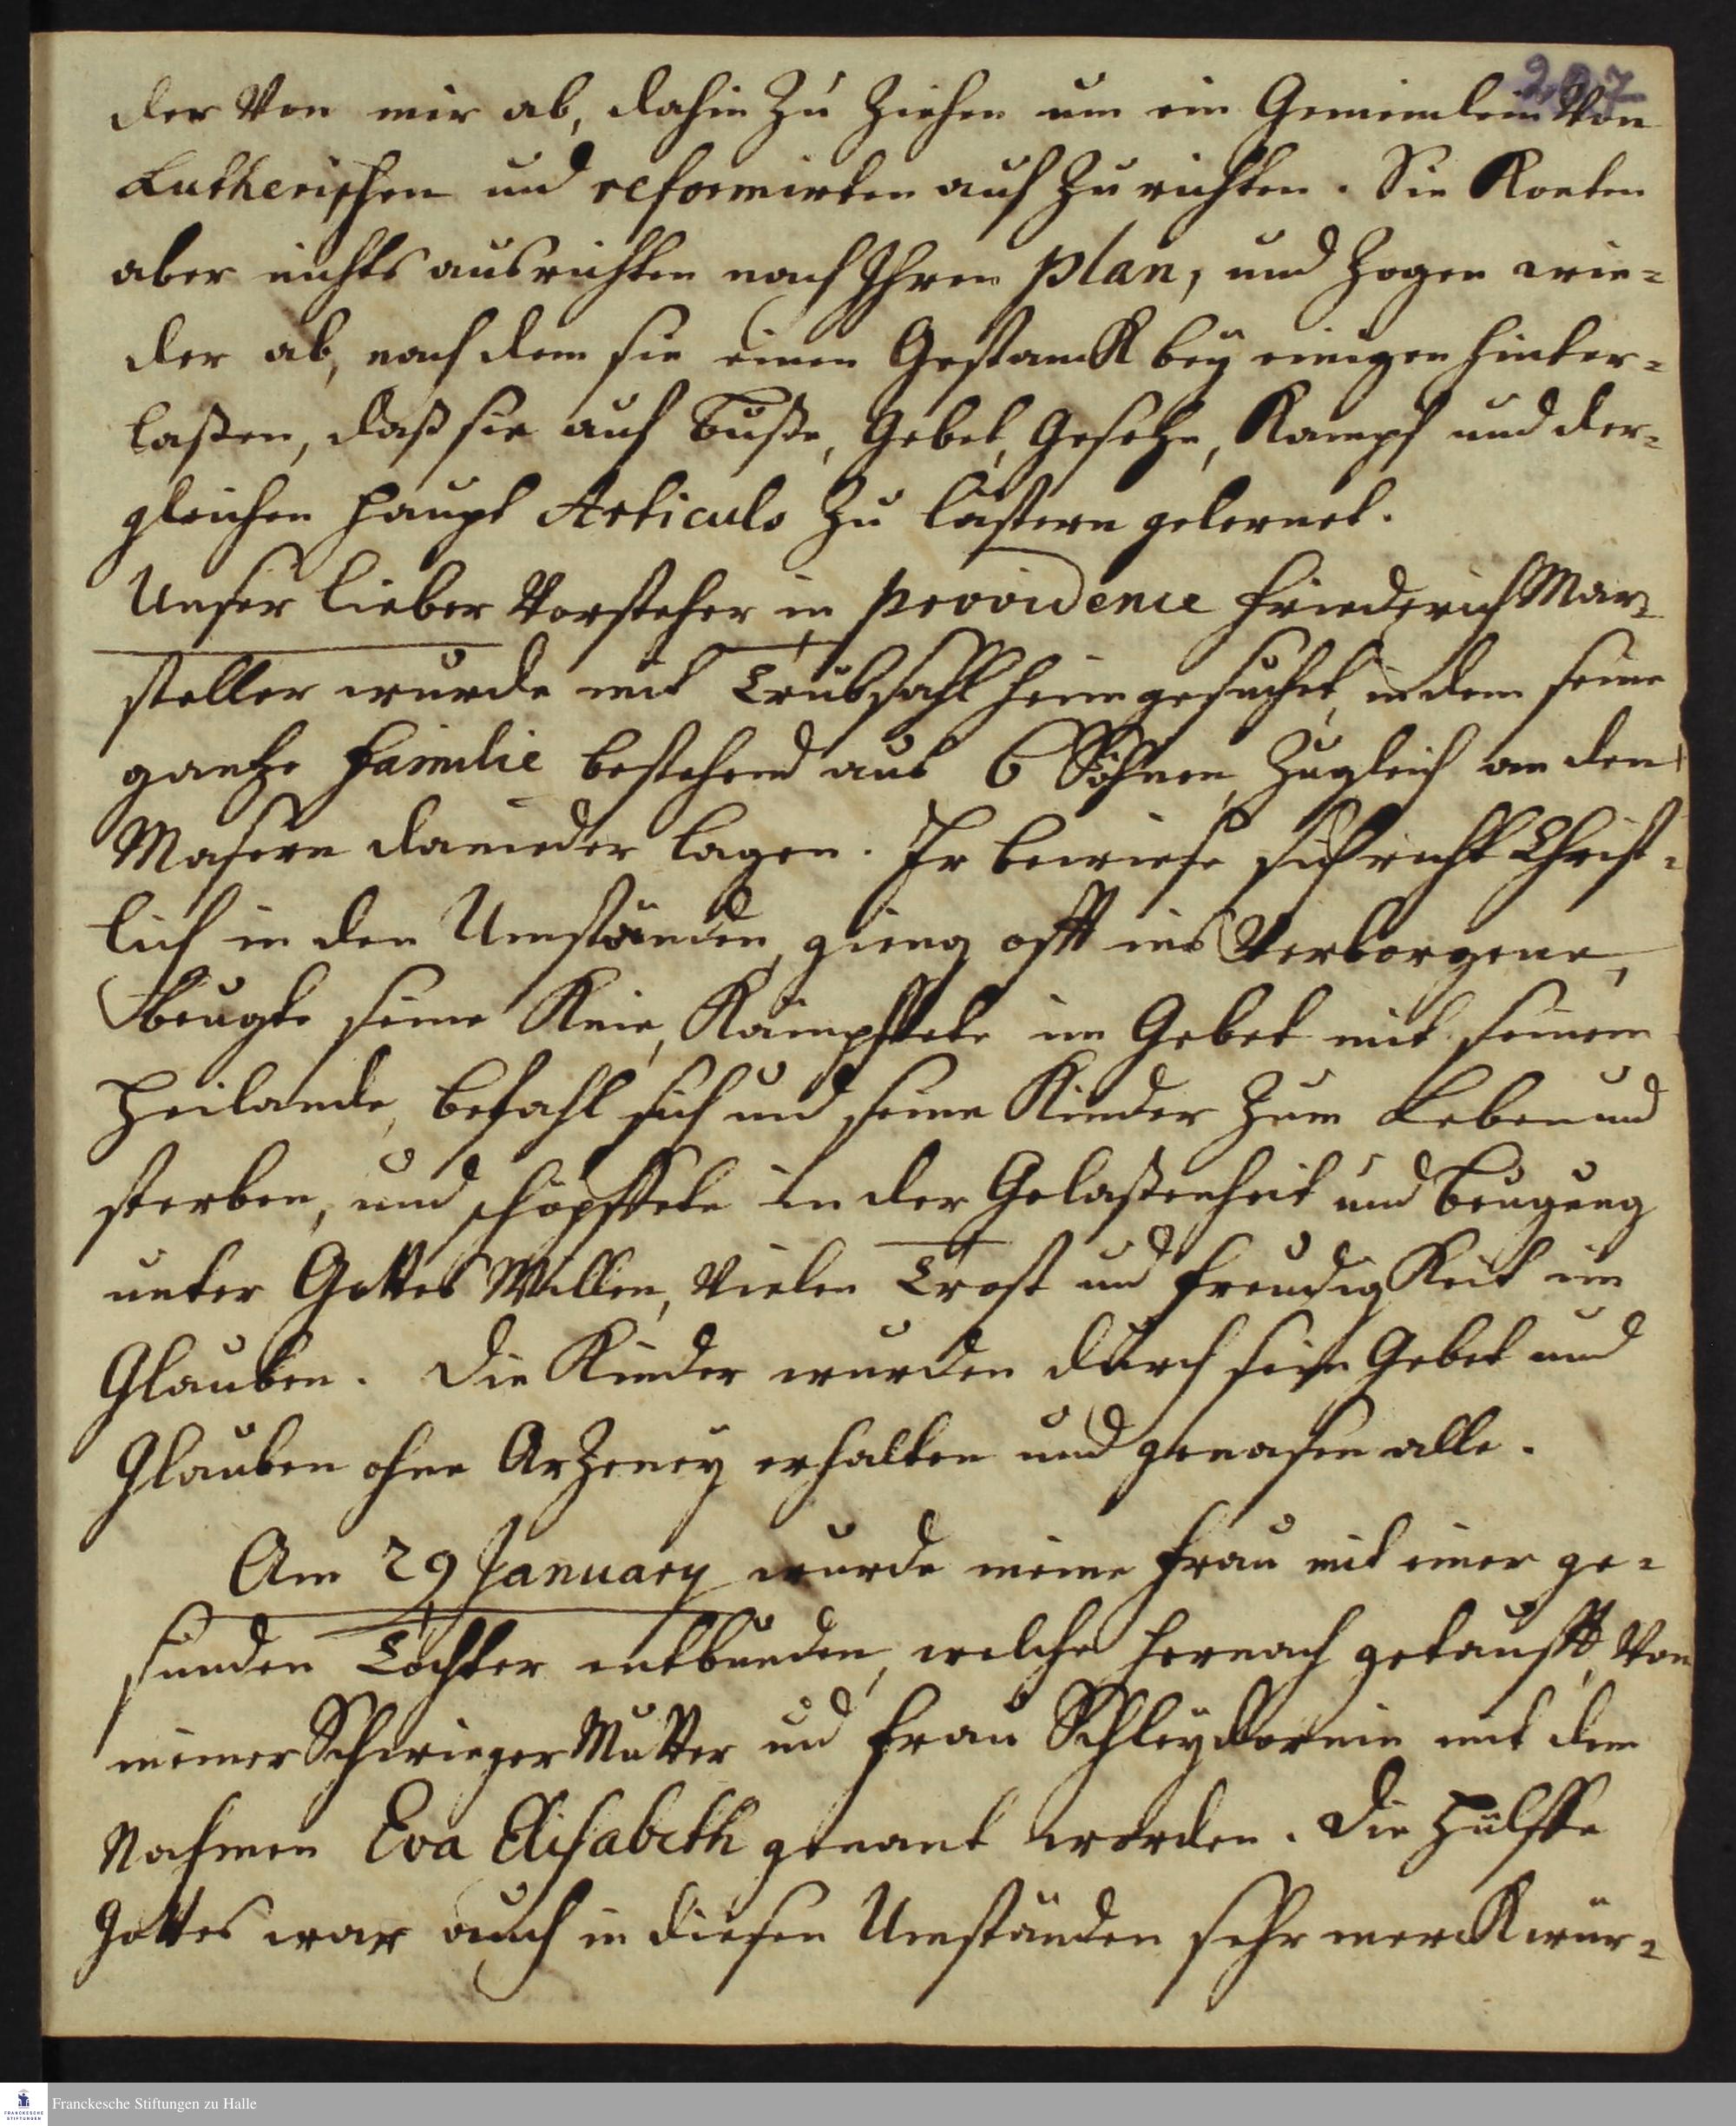 207
der von mir ab, dahin zu ziehen um ein Gemeinlein von
Lutherischen und reformirten auf zu richten. Sie Konten
aber nichts ausrichten nach Ihrem plan, und zogen wie=
der ab, nach dem sie einen GestancK bey einigen hinter=
laßen, daß sie auf Buße, Gebet, Gesetze, Kampf und der=
gleichen Haupt Articuls zu lästern gelernet.
Unser lieber Vorsteher in providence Friederich Mar=
steller wurde mit Trübsahl heimgesuchet, indem seine
gantze Familie bestehend aus 6 Söhnen, zugleich an den
Masern danieder lagen. Er bewiese sich recht Christ=
lich in den Umständen, gieng offt ins Verborgene,
beugte seine Knie, Kämpffete im Gebet mit seinem
Heilande, befahl sich und seine Kinder zum Leben und
sterben, und schöpffete in der Gelaßenheit und Beugung
unter Gottes Willen, vielen Trost und FreudigKeit im
Glauben. Die Kinder wurden durch sein Gebet und
Glauben ohne Arzeney erhalten und genasen alle.
Am 29 January wurde meine Frau mit einer ge=
sunden Tochter entbunden, welche hernach getaufft, von
meiner SchwiegerMutter und Frau Schleydornin mit dem
Nahmen Eva Elisabeth genant worden. Die Hülffe
Gottes war auch in diesen Umständen sehr mercKwür=
FRANCKESCHE
STIFTUNGEN
Franckesche Stiftungen zu Halle